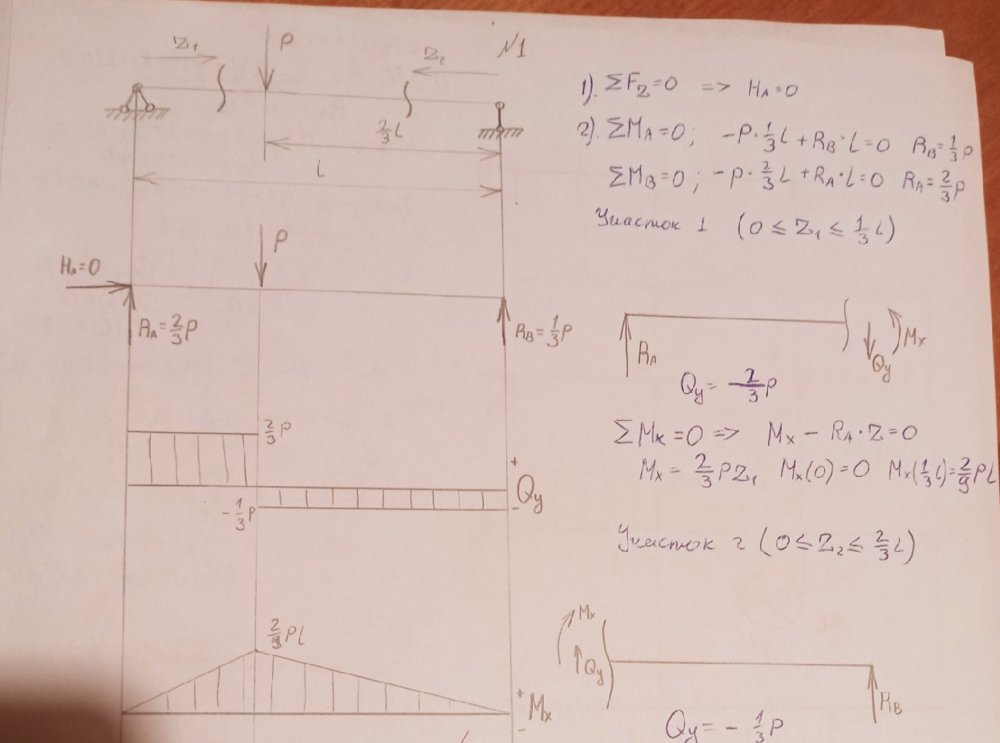 Z₁
P
Z₂
№1
2/3 l
l
P
Hₐ=0
Rₐ=2/3 P
R_B=1/3 P
2/3 P
+
Qy
-
-1/3 P
2/9 Pl
+
Mx
-
1). ΣF_Z=0 => Hₐ=0
2). ΣMₐ=0; -P·1/3 l + R_B·l=0 R_B=1/3 P
ΣM_B=0; -P·2/3 l + Rₐ·l=0 Rₐ=2/3 P
Участок 1 (0 ≤ Z₁ ≤ 1/3 l)
Rₐ
Qy
Mx
Qy = 2/3 P
ΣMx=0 => Mx - Rₐ·Z=0
Mx = 2/3 PZ₁ Mx(0)=0 Mx(1/3 l)=2/9 Pl
Участок 2 (0 ≤ Z₂ ≤ 2/3 l)
Mx
Qy
R_B
Qy = - 1/3 P